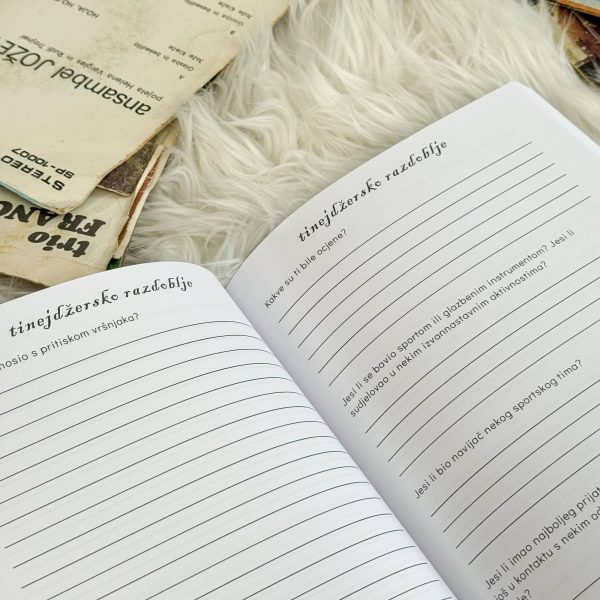 HOJA, HO
B
Glasba in besedilo
Jože Krež
A
Glasba in besedilo
Jože Krež
ansambel JOŽE
pojeta Helena Vergles in Rudi Trojner
STEREO
SP-10007
trio
FRANC
tinejdžersko razdoblje
nosio s pritiskom vršnjaka?
tinejdžersko razdoblje
Kakve su ti bile ocjene?
Jesi li se bavio sportom ili glazbenim instrumentom? Jesi li
sudjelovao u nekim izvannastavnim aktivnostima?
Jesi li bio navijač nekog sportskog tima?
Jesi li imao najboljeg prijat
još u kontaktu s nekim od
de?